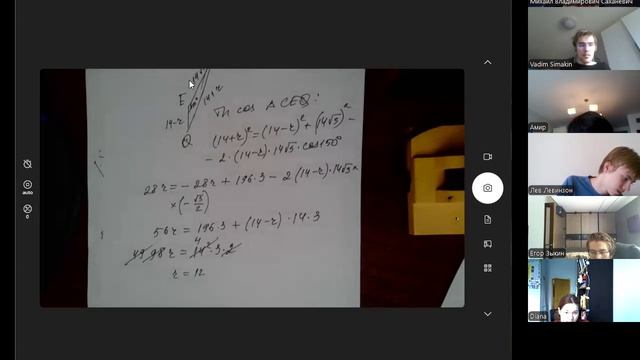 Михаил Владимирович Саханевич
Vadim Simakin
Амир
Лев Левинзон
Егор Зыкин
Diana
auto
0
14√3
E
14+r
14-r
Q
Th cos Δ CEQ:
(14+r)² = (14-r)² + (14√3)² -
- 2·(14-r)·14√3·cos150°
28r = -28r + 196·3 - 2(14-r)·14√3×
×(-√3/2)
56r = 196·3 + (14-r)·14·3
49 98r = 14²·3·2
4
r = 12